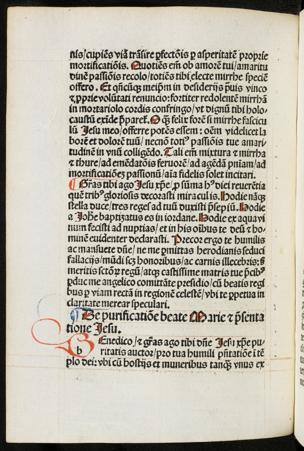 nis/cupiẽs viã trãsire ꝑfectõis ꝑ asperitatẽ proprie
mortificatiõis. Quotiẽs em̃ ob amorẽ tui/amaritu
dinẽ passiõis recolo/totiẽs tibi electe mirrhe speciẽ
offero. Et qñcũqꝫ meip̃m in desiderijs ꝓrijs vinco
⁊ ꝓprie volũtati renuncio: fortiter redolentẽ mirrhã
in mortariolo cordis confringo/vt dignũ tibi holo
caustũ exide p̃paret. O qꝫ felix forẽ si mirrhe fascicu
lũ Jesu meo/offerre potẽs essem: oẽm videlicet la
borẽ et dolorẽ tuũ/necnõ totiꝰ passiõis tue amari
tudinẽ in vnũ colligẽdo. Tali em̃ mixtura ⁊ mirrha
⁊ thure/ad emẽdatiõẽ feruorẽ/ad agẽdã pñiam/ad
mortificatiõeꝫ passionũ/aĩa fidelis solet incitari.
Gr̃as tibi ago Jesu xp̃e/ꝓ sũma hꝰ diei reuerẽtia
quẽ tribꝰ gloriosis decorasti miraculis. Hodie nãqꝫ
stella duce/tres reges ad tuũ duxisti p̃sepiũ. Hodie
a Johẽ baptizatus es in iordane. Hodie ex aqua vi
num fecisti ad nuptias/et in his oĩbus te deũ ⁊ ho
minẽ euidenter declarasti. Precor ergo te humilis
ac mansuete dñe/ne me ꝑmittas herodianis seduci
fallacijs/mũdi scꝫ honoribus/ac carnis illecebris: s̃
meritis sctõꝝ regũ/atqꝫ castissime matris tue p̃cibꝰ
ꝑduc me angelico comitãte presidio/cũ beatis regi
bus ꝑ viam rectã in regionẽ celestẽ/vbi te ꝑpetua in
claritate merear speculari.
De purificatiõne beate Marie ⁊ p̃senta
tione Jesu.
Benedico/⁊ gr̃as ago tibi dñe Jesu xp̃e pu
ritatis auctor/pro tua humili p̃ntatiõne ĩ tẽ
plo dei: vbi cũ hostijs et muneribus tanqꝫ vnus ex